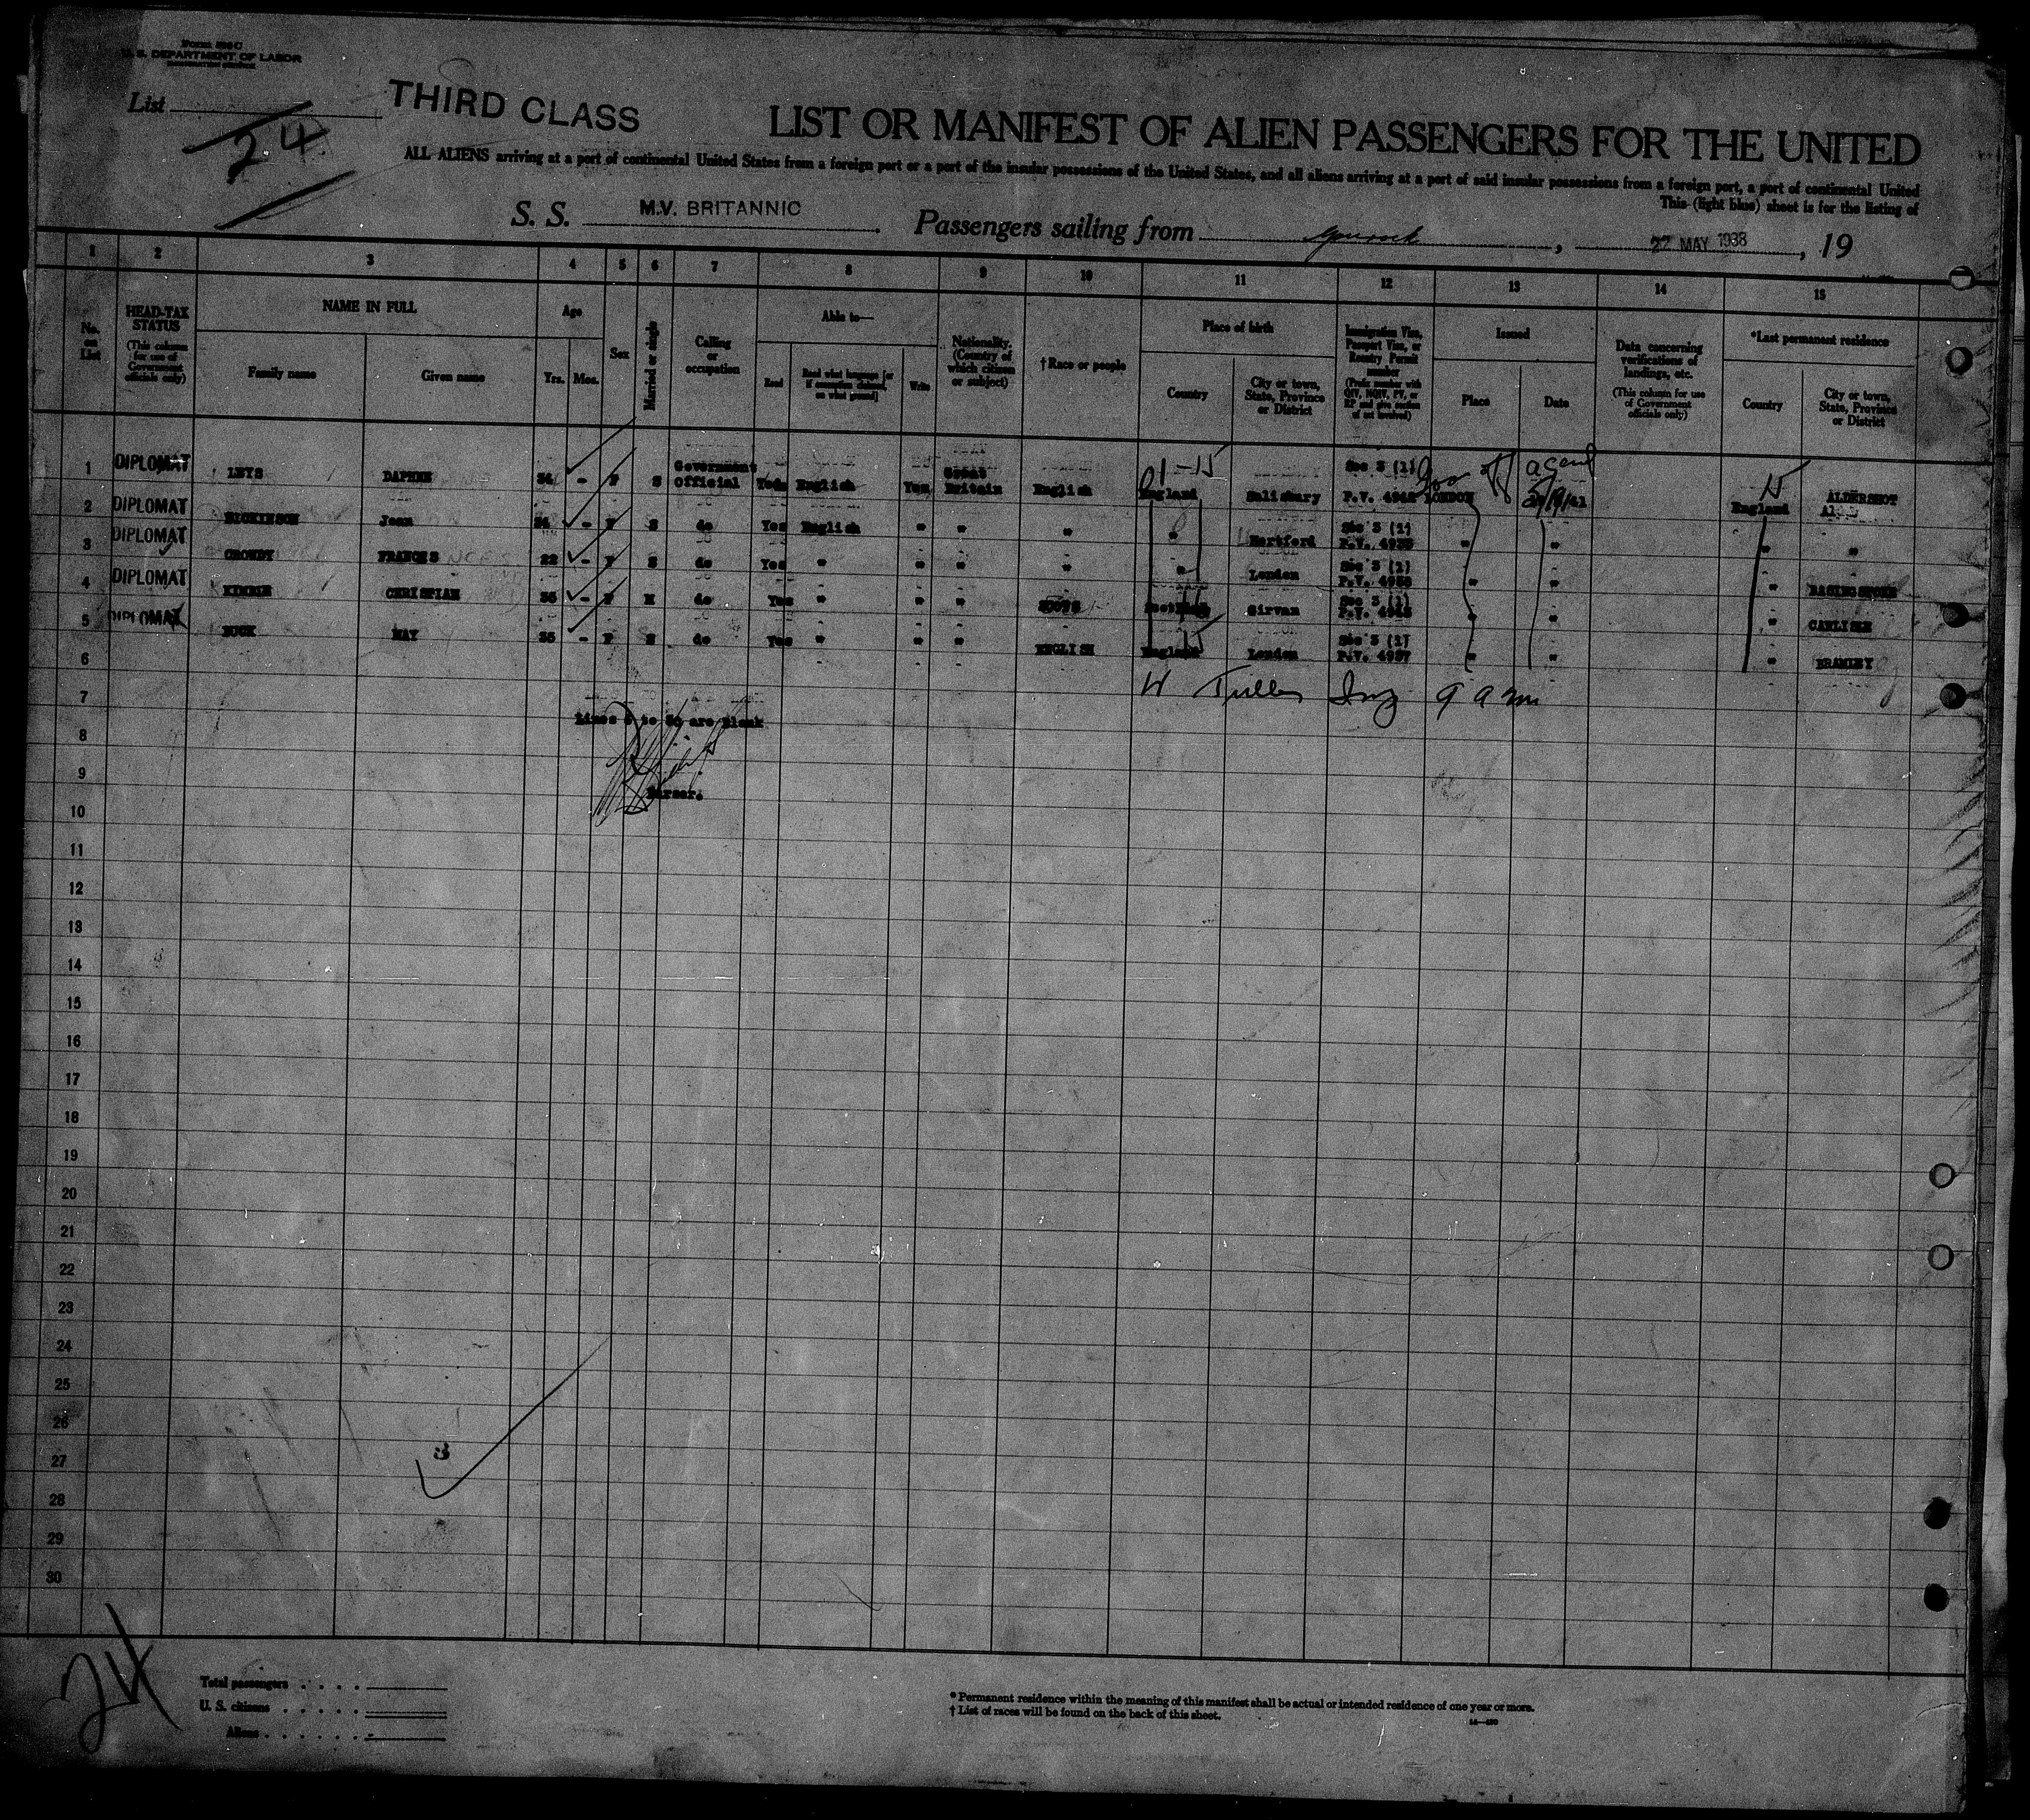 Form 500 C
U. S. DEPARTMENT OF LABOR
List
24
THIRD CLASS
LIST OR MANIFEST OF ALIEN PASSENGERS FOR THE UNITED
ALL ALIENS arriving at a port of continental United States from a foreign port or a port of the insular possessions of the United States, and all aliens arriving at a port of said insular possessions from a foreign port, a port of continental United
This (light blue) sheet is for the listing of
S. S. M.V. BRITANNIC Passengers sailing from Gourock, 22 MAY 1938, 19
1 2 3 4 5 6 7 8 9 10 11 12 13 14 15
No. on List
HEAD-TAX STATUS (This column for use of Government officials only)
NAME IN FULL
Family name Given name
Age
Yrs. Mos.
Sex
Married or single
Calling or occupation
Able to—
Read Read what language [or if exemption claimed, on what ground] Write
Nationality. (Country of which citizen or subject)
†Race or people
Place of birth
Country City or town, State, Province or District
Immigration Visa, Passport Visa, or Reentry Permit number (Prefix number with QIV, NQIV, PV, or RP and give section of act involved)
Issued
Place Date
Data concerning verifications of landings, etc. (This column for use of Government officials only)
*Last permanent residence
Country City or town, State, Province or District
1 DIPLOMAT LEYS DAPHNE - F S Government Official Yes English Yes Great Britain English England Salisbury Sec 3 (1) P.V. LONDON England ALDERSHOT
2 DIPLOMAT DICKINSON Joan - F S do Yes English " " " " Hertford Sec 3 (1) P.V. " " " "
3 DIPLOMAT FRANCES 22 - F S do Yes " " " " " London Sec 3 (1) P.V. " " " BASINGSTOKE
4 DIPLOMAT CHRISTIAN 35 - F M do Yes " " " SCOTS Girvan Sec 3 (1) P.V. " " " CARLISLE
5 DIPLOMAT BUCK MAY 35 - F do Yes " " " ENGLISH England London Sec 3 (1) P.V. 4957 " " " BRAMLEY
6
7
Lines 6 to 30 are Blank
8
9
Purser.
10
11
12
13
14
15
16
17
18
19
20
21
22
23
24
25
26
27
28
29
30
24
Total passengers
U. S. citizens
Aliens
* Permanent residence within the meaning of this manifest shall be actual or intended residence of one year or more.
† List of races will be found on the back of this sheet.